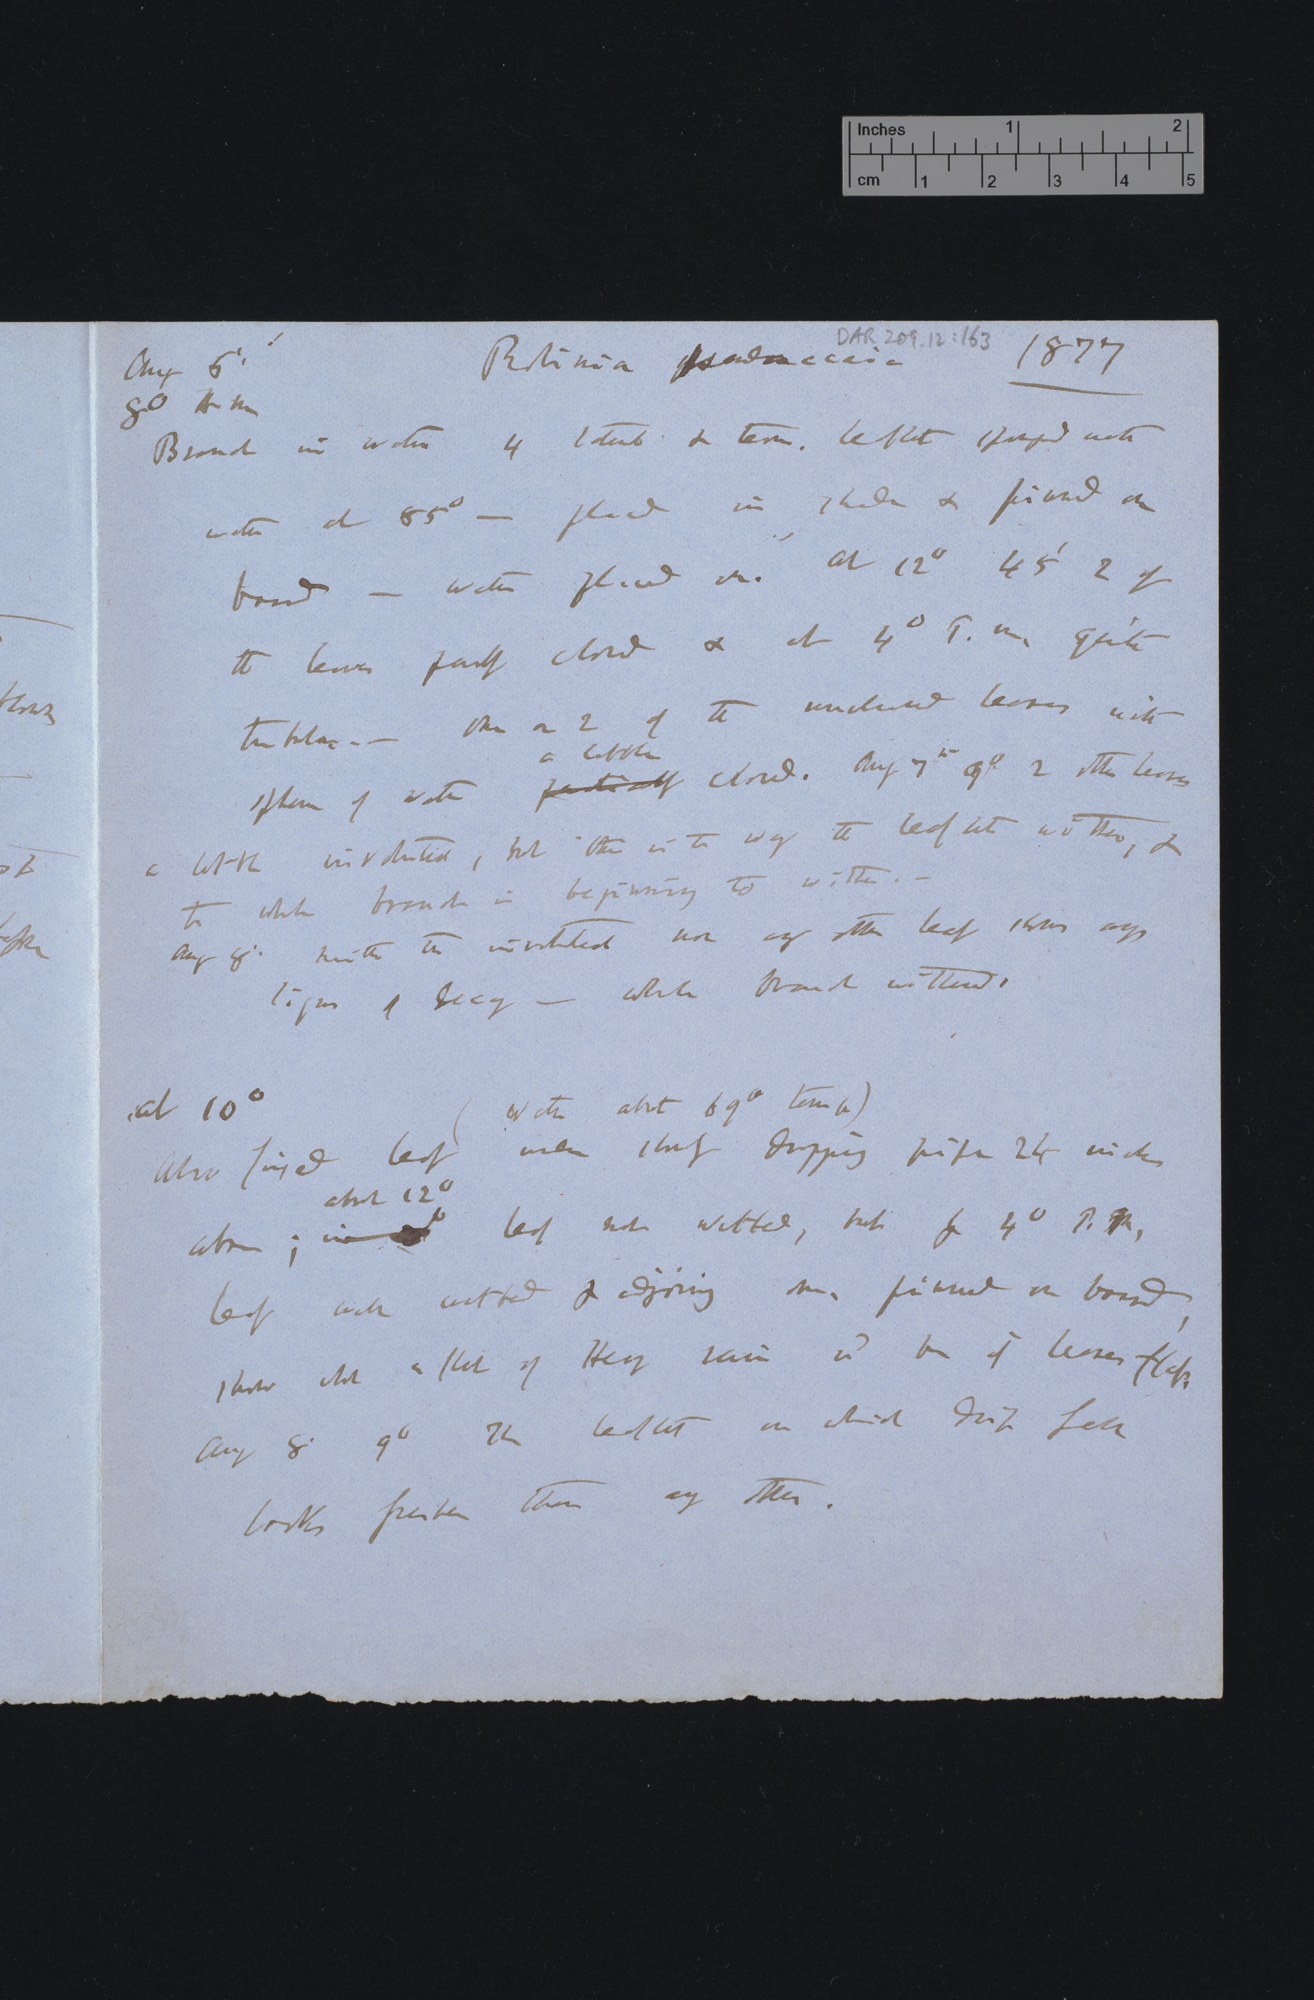 Inches 1 2
cm 1 2 3 4 5
DAR 209.12:163
Aug 6' Robinia pseudacacia 1877
8° A.m
Branch in water 4 lateral & term. leaflets syringed with
water at 85° — placed in shade & pinned on
board — water placed on. at 12° 45' 2 of
the leaves partly closed & at 4° P.m. quite
tubular — one or 2 of the unclosed leaves with
a little
sphere of water partially closed. Aug 7th 9° 2 other leaves
a little involuted, but this is the way the leaflets wither, &
the whole branch is beginning to wither. —
Aug 8. neither the involuted nor any other leaf shows any
signs of decay — whole branch withered.
at 10° (water about 69° temp)
Also fixed leaf under dripping pipe 24 inches
about 12°
above; leaf not wetted, but by 4° P.M,
leaf well wetted & adjoining one, pinned on board,
show what effect of Heavy rain wd be if leaves flat.
Aug 8. 9° The leaflet on which drip fell
looks fresher than any other.